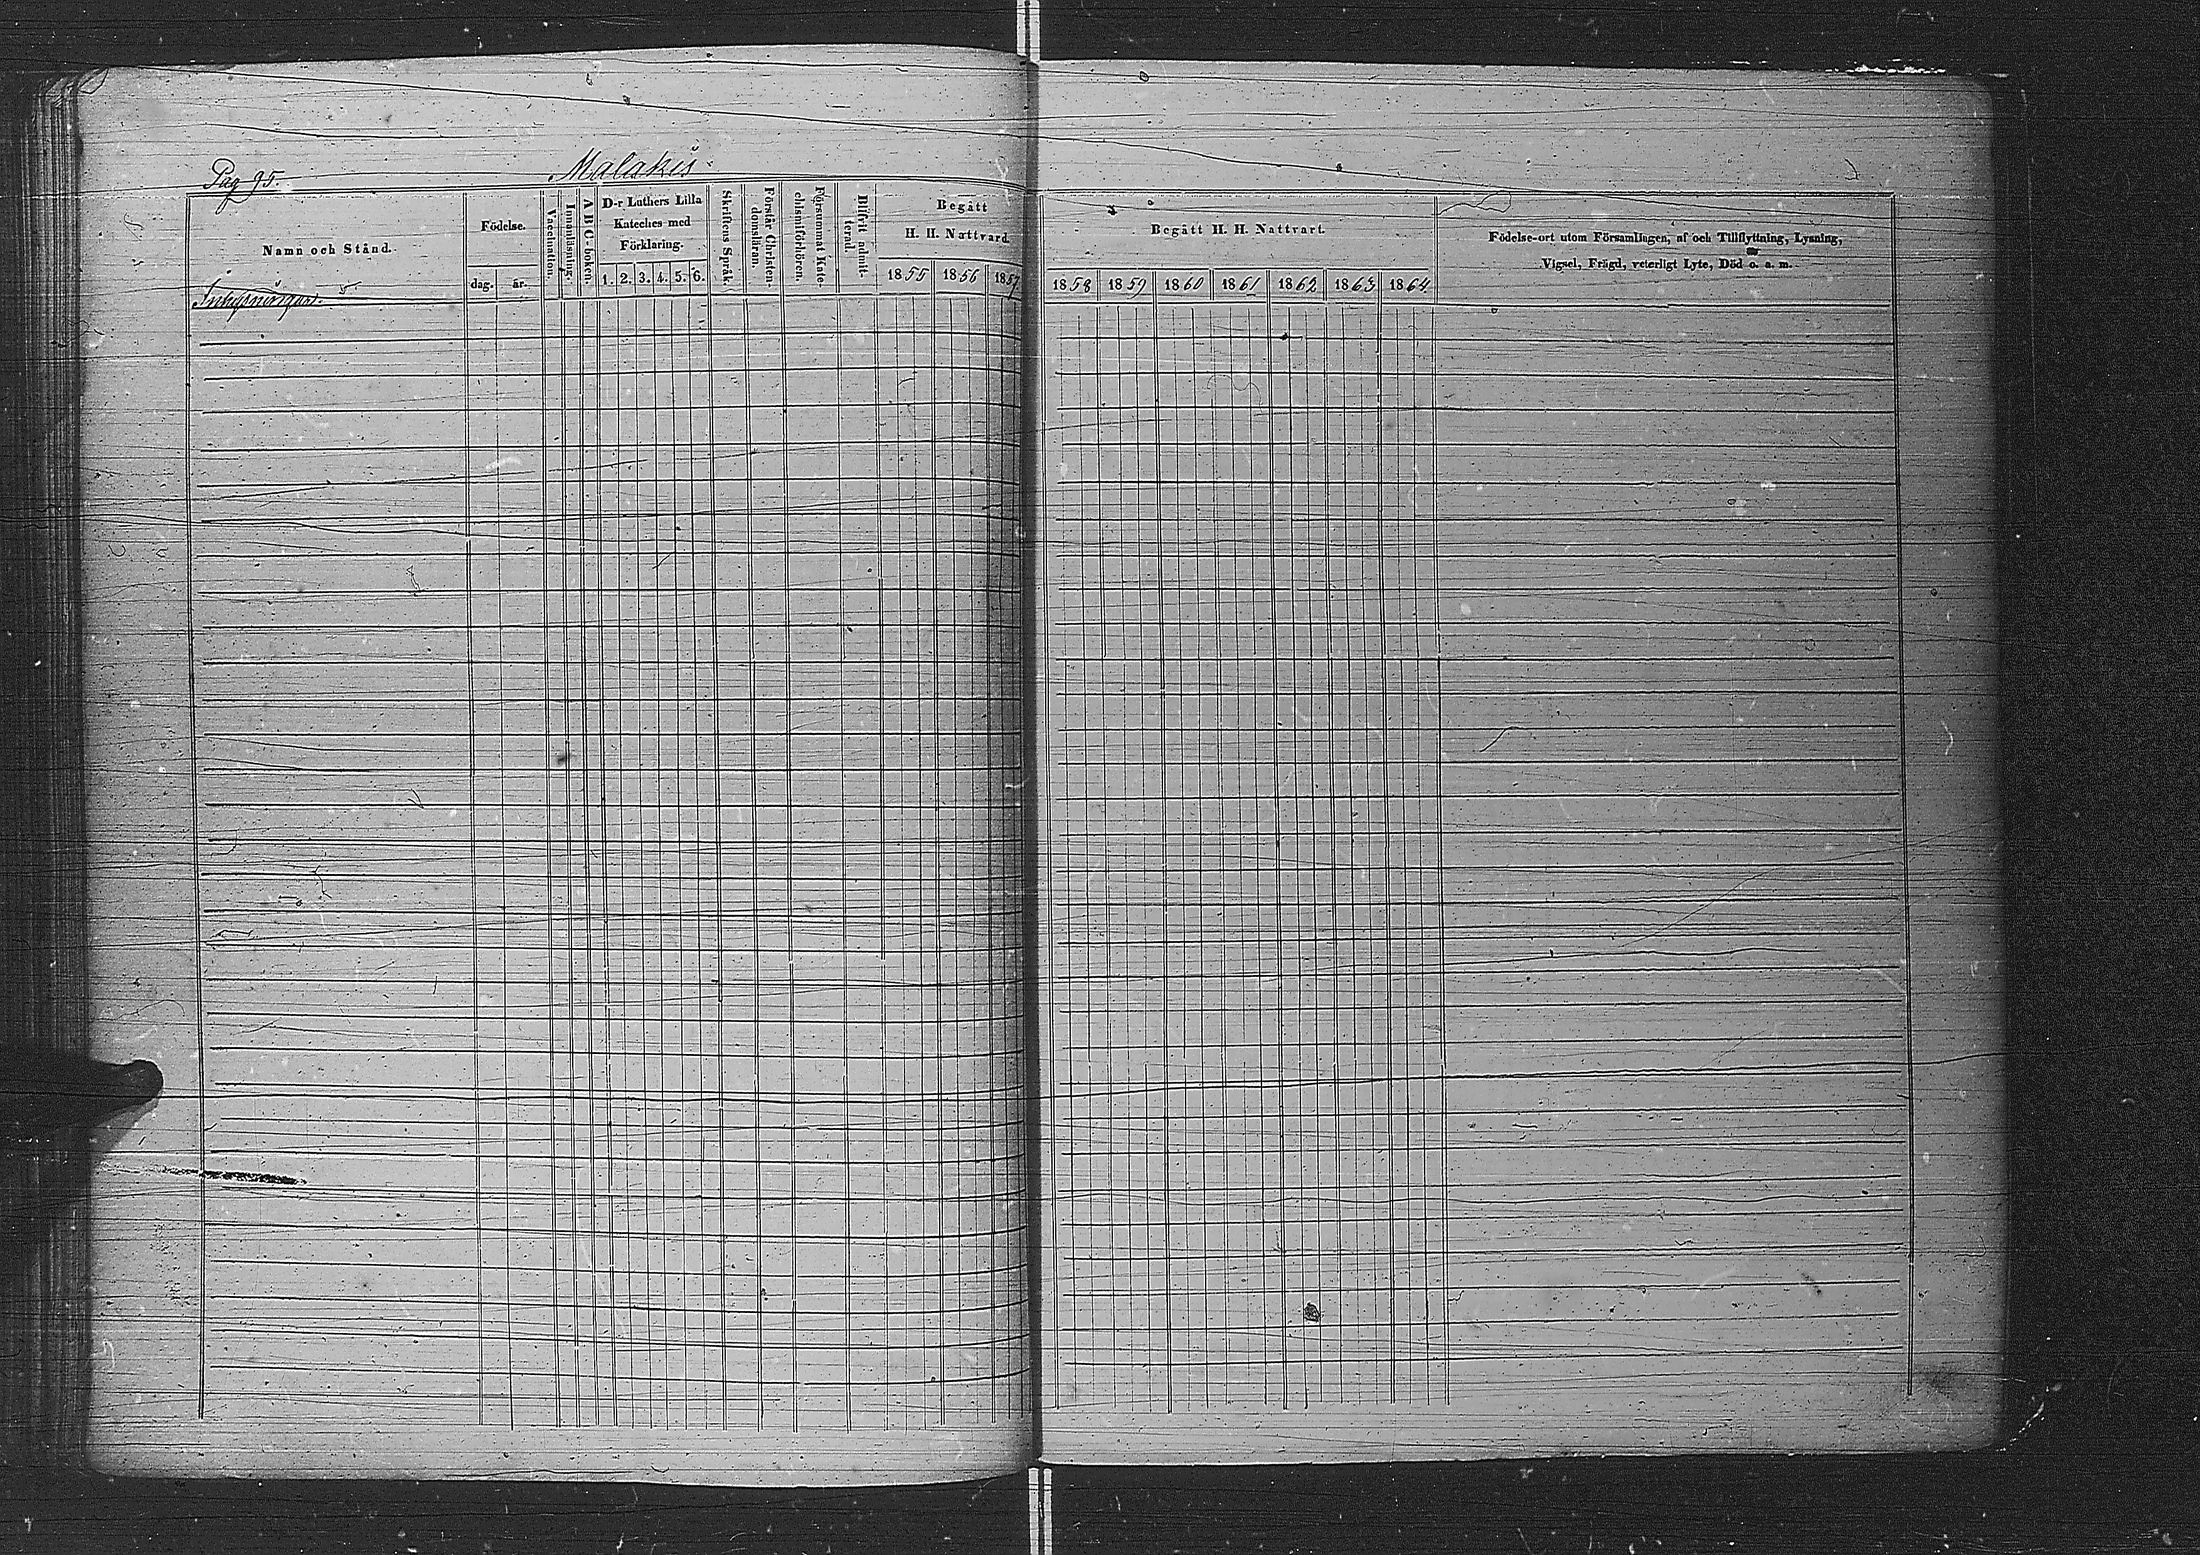 Pag 95.
Malakis.
Namn och Stånd.
Födelse.
dag.
år.
Vaccination.
Innanläsning.
A B C-boken.
D-r Luthers Lilla
Kateches med
Förklaring.
1. 2. 3. 4. 5. 6.
Skriftens Språk.
Förstår Christen-
domsläran.
Försummat Kate-
chismiförhören.
Blifvit admit-
terad.
Begått
H. H. Nattvard
1855 1856 1857
Inhysningar.
Begått H. H. Nattvart.
1858 1859 1860 1861 1862 1863 1864
Födelse-ort utom Församlingen, af och Tillflyttning, Lysning,
Vigsel, Frägd, veterligt Lyte, Död o. a. m.